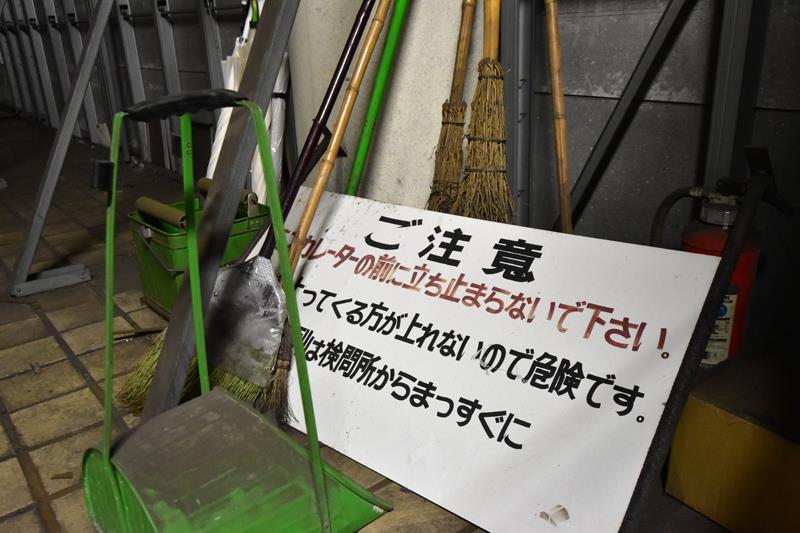 ご注意
カレーターの前に立ち止まらないで下さい。
ってくる方が上れないので危険です。
は検問所からまっすぐに